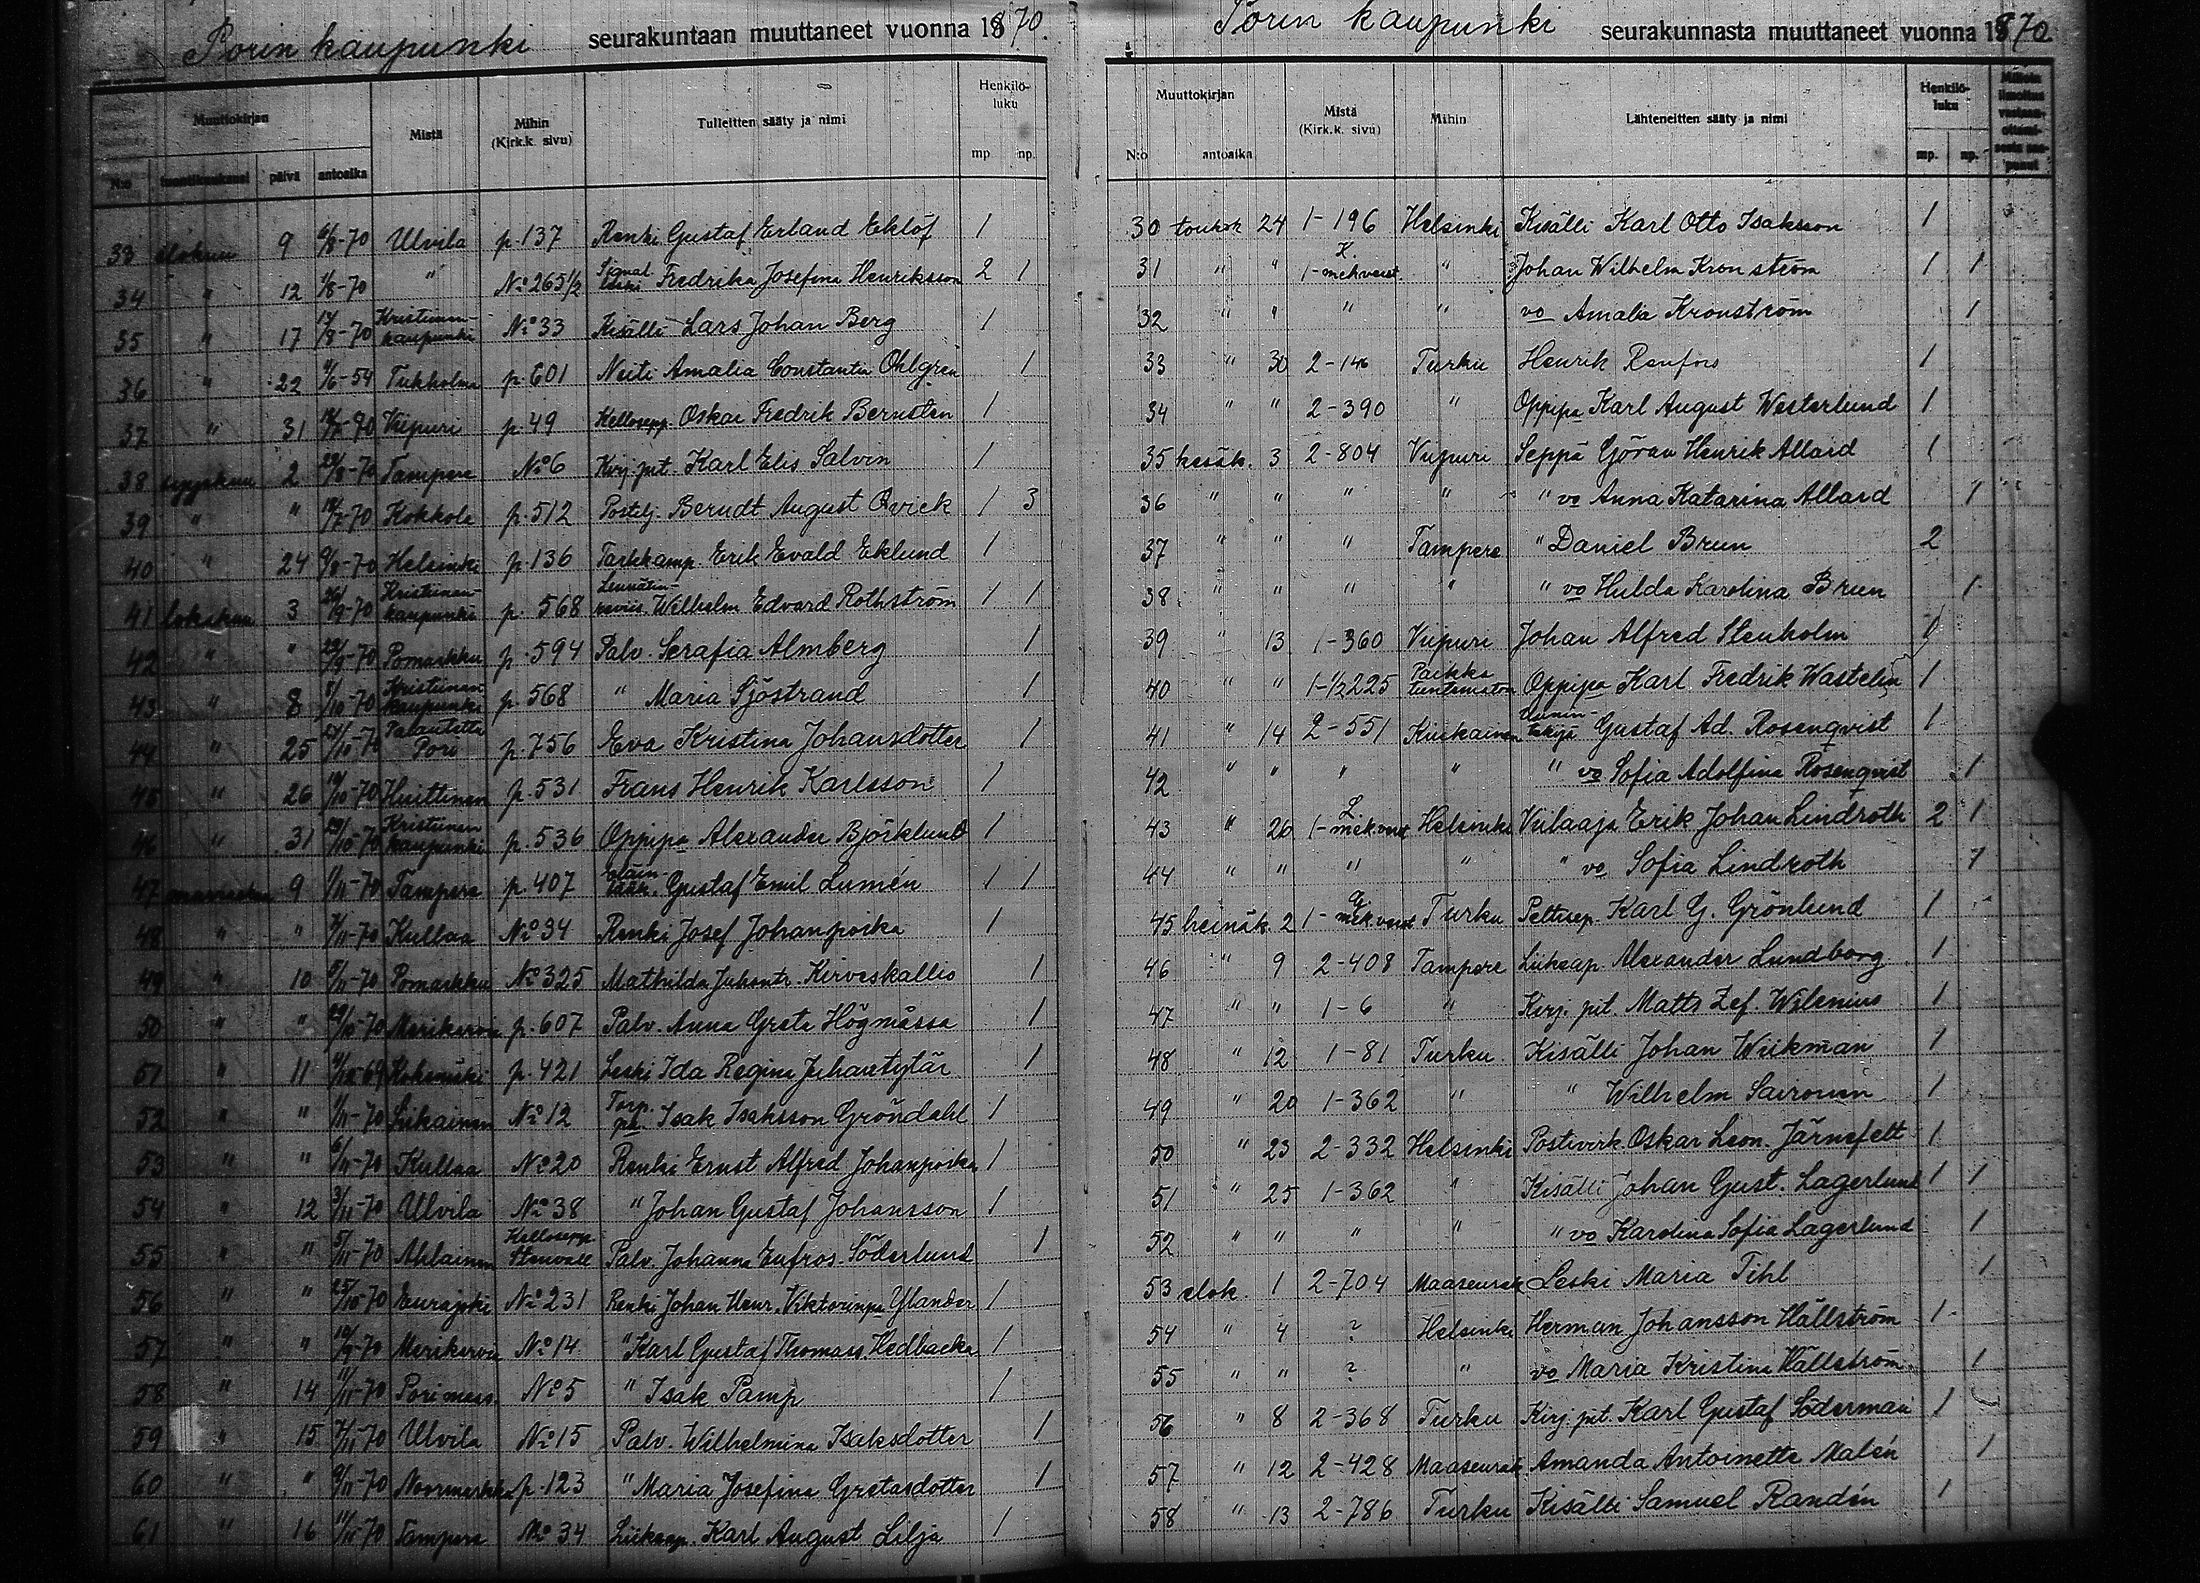 Porin kaupunki seurakuntaan muuttaneet vuonna 1870.
Muuttokirjan Mistä Mihin (Kirk.k. sivu) Tulleitten sääty ja nimi Henkilöluku
N:o päivä antoaika mp np.
33 elokuu 9 6/8-70 Ulvila p.137 Renki Gustaf Erland Eklöf 1
34 " 12 1/8-70 " No 265 1/2 Fredrika Josefina Henriksson 2 1
35 " 17 /8-70 Kristiinankaupunki No 33 Kisälli Lars Johan Berg 1
36 " 22 /6-54 Tukholma p.601 Neiti Amalia Constantia Ohlgren 1
37 " 31 Viipuri p.49 Kellosepp. Oskar Fredrik Bernsten 1
38 syyskuu 2 29/8-70 Tampere No 6 Kirj.pit. Karl Elis Salvin 1
39 " " Kokkola p.512 Postilj. Berndt August Qvick 1 3
40 " 24 Helsinki p.136 Erik Evald Eklund 1
41 lokakuu 3 26/9-70 Kristiinankaupunki p. 568 Wilhelm Edvard Rothström 1 1
42 " " 29/9-70 Pomarkku p.594 Palv. Serafia Almberg 1
43 " 8 /10-70 Kristiinankaupunki p.568 " Maria Sjöstrand 1
44 " 25 /10-70 Palautettu Pori p.756 Eva Kristina Johansdotter 1
45 " 26 /10-70 Huittinen p.531 Frans Henrik Karlsson 1
46 " 31 /10-70 Kristiinankaupunki p.536 Oppipa Alexander Björklund 1
47 marraskuu 9 1/11-70 Tampere p.407 Gustaf Emil Lumén 1 1
48 " " /11-70 Kullaa No 34 Renki Josef Johanpoika 1
49 " 10 /11-70 Pomarkku No 325 Mathilda Juhontr. Kirveskallio 1
50 " " /10-70 Merikarvia p.607 Palv. Anna Greta Högmåssa 1
51 " 11 Kokemäki p.421 Leski Ida Regina Juhantytär 1
52 " " /11-70 Siikainen No 12 Isak Isaksson Gröndahl 1
53 " " 6/11-70 Kullaa No 20 Renki Ernst Alfred Johanpoika 1
54 " 12 3/11-70 Ulvila No 38 " Johan Gustaf Johansson 1
55 " " 5/11-70 Ahlainen Kellosepp. Stenvall Palv. Johanna Eufros. Söderlund 1
56 " " 25/10-70 Eurajoki No 231 Renki Johan Henr. Viktorinpa Ylander 1
57 " " /9-70 Merikarvia No 14 " Karl Gustaf Thomass. Hedbacka 1
58 " 14 11/11-70 Pori maas. No 5 " Isak Pamp 1
59 " 15 /11-70 Ulvila No 15 Palv. Wilhelmina Isaksdotter 1
60 " " 9/11-70 Noormarkku p.123 " Maria Josefina Gretasdotter 1
61 " 16 11/11-70 Tampere No 34 Liikeap. Karl August Lilja 1
Porin kaupunki seurakunnasta muuttaneet vuonna 1870
Muuttokirjan Mistä (Kirk.k. sivu) Mihin Lähteneitten sääty ja nimi Henkilöluku
N:o antoaika mp. np.
30 toukok 24 1-196 Helsinki Kisälli Karl Otto Isaksson 1
31 " " K. 1-mek.verst. " Johan Wilhelm Kronström 1 1
32 " " " " vo Amalia Kronström 1
33 " 30 2-146 Turku Henrik Renfors 1
34 " " 2-390 " Oppipa Karl August Westerlund 1
35 kesäk. 3 2-804 Viipuri Seppä Göran Henrik Allard 1
36 " " " " " vo Anna Katarina Allard 1
37 " " " Tampere " Daniel Brun 2
38 " " " " " vo Hulda Karolina Brun 1
39 " 13 1-360 Viipuri Johan Alfred Stenholm 1
40 " " 1-1/2 225 Paikka tuntematon Oppipa Karl Fredrik Wastelin 1
41 " 14 2-551 Kiukainen Gustaf Ad. Rosenqvist 1
42 " " " " " vo Sofia Adolfina Rosenqvist 1
43 " 26 L. 1-mek.verst Helsinki Viilaaja Erik Johan Lindroth 2 1
44 " " " " " vo Sofia Lindroth 1
45 heinäk. 2 G. 1-mek.verst Turku Peltisep. Karl G. Grönlund 1
46 " 9 2-408 Tampere Liikeap. Alexander Lundborg 1
47 " " 1-6 " Kirj. pit. Matts Zef. Wilenius 1
48 " 12 1-81 Turku Kisälli Johan Wiikman 1
49 " 20 1-362 " " Wilhelm Saironen 1
50 " 23 2-332 Helsinki Postivirk. Oskar Leon. Järnefelt 1
51 " 25 1-362 " Kisälli Johan Gust. Lagerlund 1 1
52 " " " " " vo Karolina Sofia Lagerlund 1
53 elok. 1 2-704 Maaseurak Leski Maria Tihl 1
54 " 4 ? Helsinki Herman Johansson Hällström 1
55 " " ? " vo Maria Kristina Hällström 1
56 " 8 2-368 Turku Kirj. pit. Karl Gustaf Söderman 1
57 " 12 2-428 Maaseurak Amanda Antoinette Malén 1
58 " 13 2-786 Turku Kisälli Samuel Randén 1